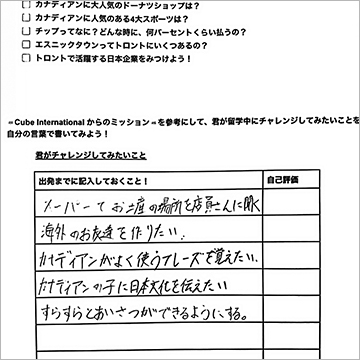 □ カナディアンに大人気のドーナツショップは？
□ カナディアンに人気のある4大スポーツは？
□ チップってなに？どんな時に、何パーセントくらい払うの？
□ エスニックタウンってトロントにいくつあるの？
□ トロントで活躍する日本企業をみつけよう！
＝Cube International からのミッション＝を参考にして、君が留学中にチャレンジしてみたいことを
自分の言葉で書いてみよう！
君がチャレンジしてみたいこと
出発までに記入しておくこと！ 自己評価
スーパーでお土産の場所を店員さんに聞く
海外のお友達を作りたい.
カナディアンがよく使うフレーズを覚えたい.
カナディアンの子に日本文化を伝えたい
すらすらとあいさつができるようにする。